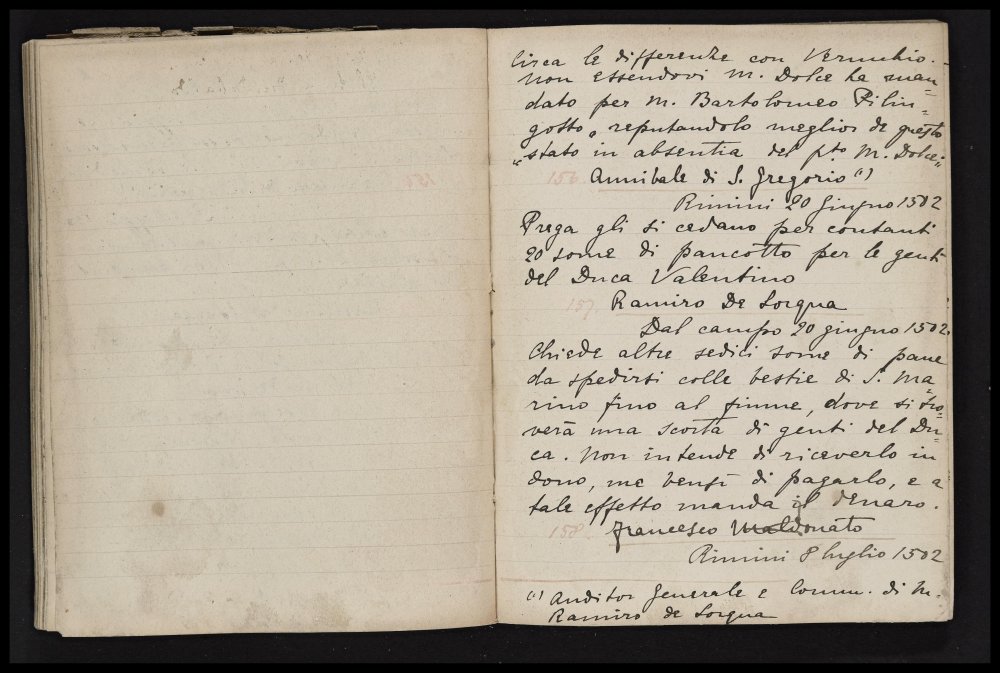 circa le differenze con Verucchio.
Non essendovi M. Dolce ha man=
dato per M. Bartolomeo Pilin=
gotto, reputandolo meglior de questo
"stato in absentia del pto M. Dolce"
156. Annibale di S. Gregorio (1)
Rimini 20 giugno 1502
Prega gli si cedano per contanti
20 some di pancotto per le genti
del Duca Valentino
157. Ramiro De Lorqua
Dal campo 20 giugno 1502.
Chiede altre sedici some di pane
da spedirsi colle bestie di S. Ma=
rino fino al fiume, dove si tro=
verà una scorta di genti del Du=
ca. Non intende di riceverlo in
dono, me bensì di pagarlo, e a
tale effetto manda il denaro.
158. Francesco Maldonato
Rimini 8 luglio 1502
(1) Auditor Generale e Comm. di M.
Ramiro de Lorqua